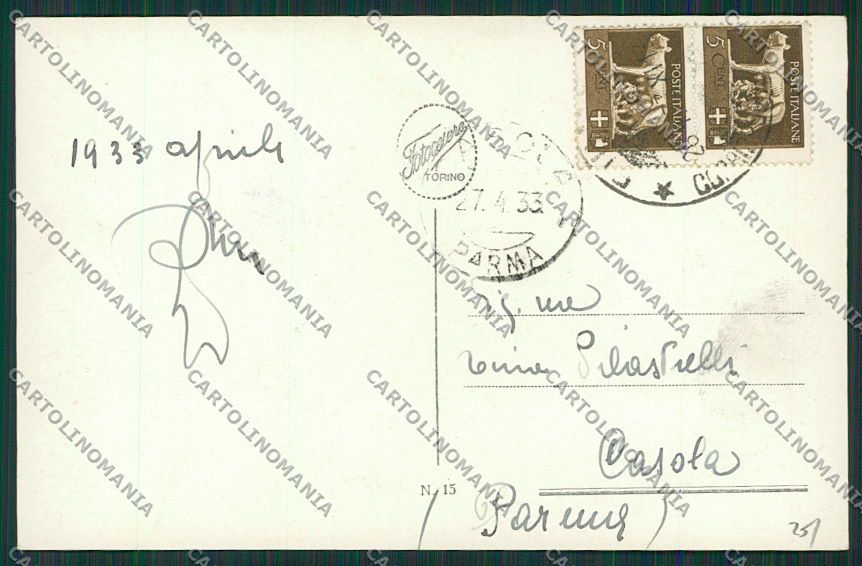 1933 aprile
Fotocelere
TORINO
27.4.33
PARMA
5 CENT.
POSTE ITALIANE
5 CENT.
POSTE ITALIANE
Sig.na
Pilastrelli
Casola
(Parma)
N. 15
25/
CARTOLINOMANIA